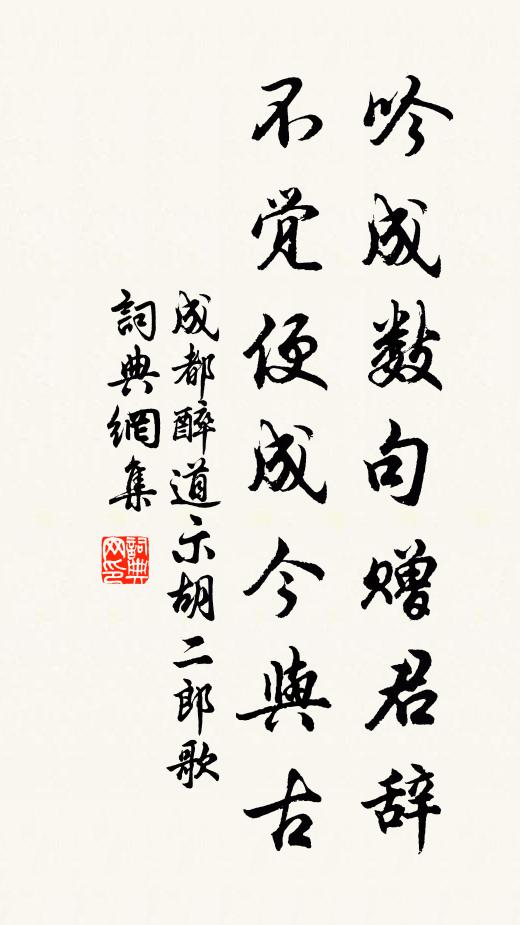 吟成数句赠君辞
不覚便成今與古
成都醉道示胡二郎歌
詞典網集
詞典网印